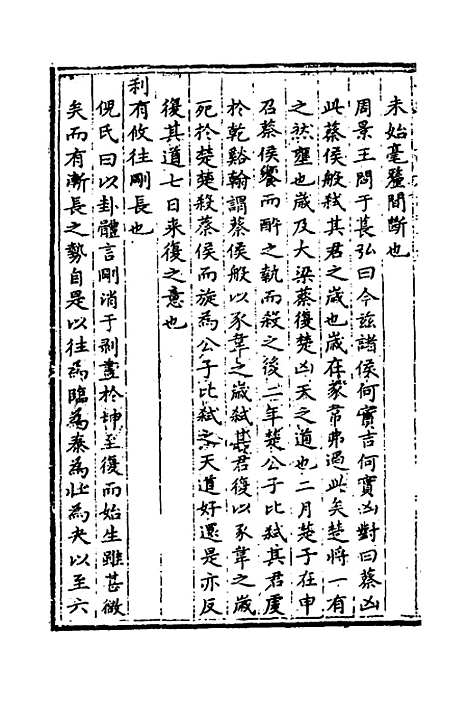 未始毫釐間斷也
周景王問于萇弘曰今茲諸侯何實吉何實凶對曰蔡凶
此蔡侯般弑其君之歲也歲在豕韋弗過此矣楚將一有
之然壅也歲及大梁蔡復楚凶天之道也二月楚子在申
召蔡侯饗而醉之執而殺之後二年楚公子比弑其君虔
於乾谿翰謂蔡侯般以豕韋之歲弑其君復以豕韋之歲
死於楚楚殺蔡侯而旋為公子比弑之天道好還是亦反
復其道七日来復之意也
利有攸往剛長也
倪氏曰以卦體言剛消于剝盡於坤至復而始生雖甚微
矣而有漸長之勢自是以往為臨為泰為壯為夬以至六